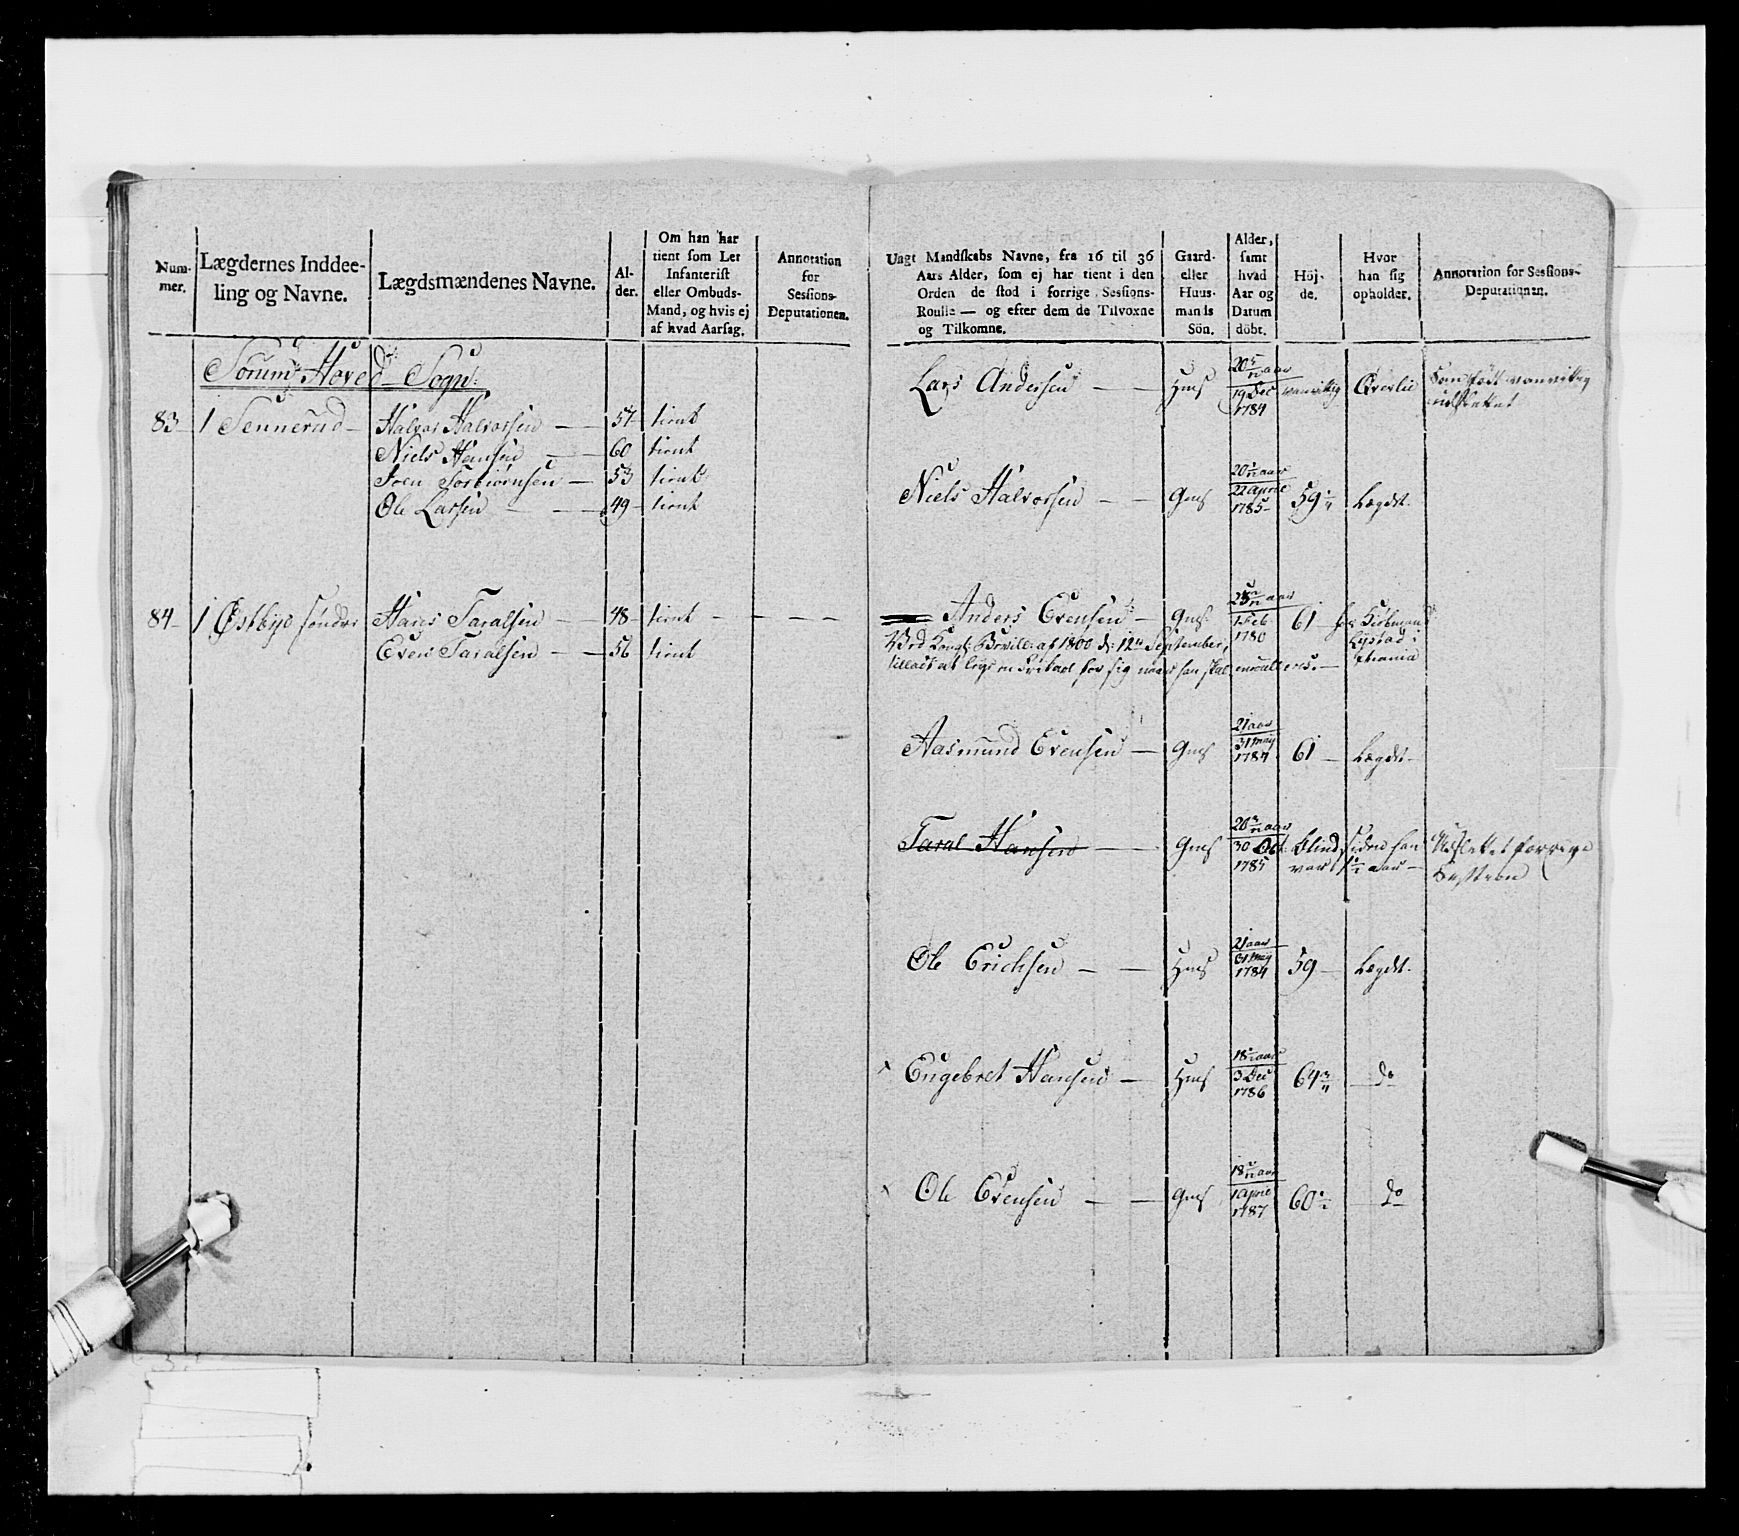 Num-
mer.
Lægdernes Inddee-
ling og Navne.
Lægdsmændenes Navne.
Al-
der.
Om han har
tient som Let
Infanterist
eller Ombuds-
Mand, og hvis ej
af hvad Aarsag.
Annotation
for
Sessions-
Deputationen.
Sørums Hoved Sogn:
83 1 Sennerud Halvor Halvorsen 57 tient
Niels Hansen 60 tient
Joen Torbiørnsen 53 tient
Ole Larsen 49 tient
84 1 Østbye søndre Hans Taralsen 48 tient
Even Taralsen 56 tient
Ungt Mandskabs Navne, fra 16 til 36
Aars Alder, som ej har tient i den
Orden de stod i forrige Sessions-
Roulle — og efter dem de Tilvoxne
og Tilkomne.
Gaard-
eller
Huus-
mands
Sön.
Alder,
samt
hvad
Aar og
Datum
döbt.
Höj-
de.
Hvor
han sig
opholder.
Annotation for Sessions-
Deputationen.
Lars Andersen Hms 20 aar
19 Dec 1784 vanvittig Øverlie
Niels Halvorsen Gms 20 aar
22 april 1785 59 Lægdet
Anders Evensen Gms aar
Feb 1780 61 hos Kiøbmand
Lystad i
af 1800 d: 12te September,
Aasmund Evensen Gms 21 aar
31 May 1784 61 Lægdet
Taral Hansen Gms 20 aar
30 Oct 1785 Blind siden han
var aar
Udslettet forrige
Session
Ole Erichsen Hms 21 aar
31 May 1784 59 Lægdet
Engebret Hansen Hms 18 aar
3 Dec 1786 64 do
Ole Evensen Gms 18 aar
1 April 1787 60 do